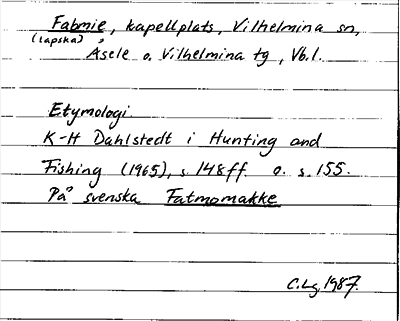 Fabmie, kapellplats, Vilhelmina sn,
(lapska)
Åsele o. Vilhelmina tg, Vb.l.
Etymologi
K-H Dahlstedt i Hunting and
Fishing (1965), s. 148ff. o. s. 155.
På svenska Fatmomakke
C.Lg. 1987.